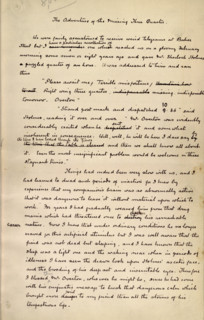 The Adventure of the Missing Three Quarter
We were fairly accustomed to receive weird telegrams at Baker
Street but I have a particular recollection of one which reached us on a gloomy February
morning some seven or eight years ago and gave Mr Sherlock Holmes
a puzzled quarter of an hour. It was addressed to him and ran
thus
"Please await me. Terrible misfortune,
Right wing three quarter missing indispensable
tomorrow. Overton"
"Strand post mark and despatched 10.36" said
Holmes, reading it over and over. "Mr Overton was evidently
considerably excited when he sent it and somewhat
incoherent in consequence. Well, well, he will be here I dare say by
the time I have looked through the Times and then we shall know all about
it. Even the most insignificant problem would be welcome in these
stagnant times."
Things had indeed been very slow with us, and I
had learned to dread such periods of inaction for I knew by
experience that my companion's brain was so abnormally active
that it was dangerous to leave it without material upon which to
work. For years I had gradually weaned him from that drug
mania which had threatened once to check his remarkable
career. Now I knew that under ordinary conditions he no longer
craved for this artificial stimulus but I was well aware that the
fiend was not dead but sleeping, and I have known that the
sleep was a light one and the waking near when in periods of
idleness I have seen the drawn look upon Holmes' ascetic face
and the brooding of his deep set and inscrutable eyes. Therefore
I blessed Mr Overton, whoever he might be, since he had come
with his enigmatic message to break that dangerous calm which
brought more danger to my friend than all the storms of his
tempestuous life.